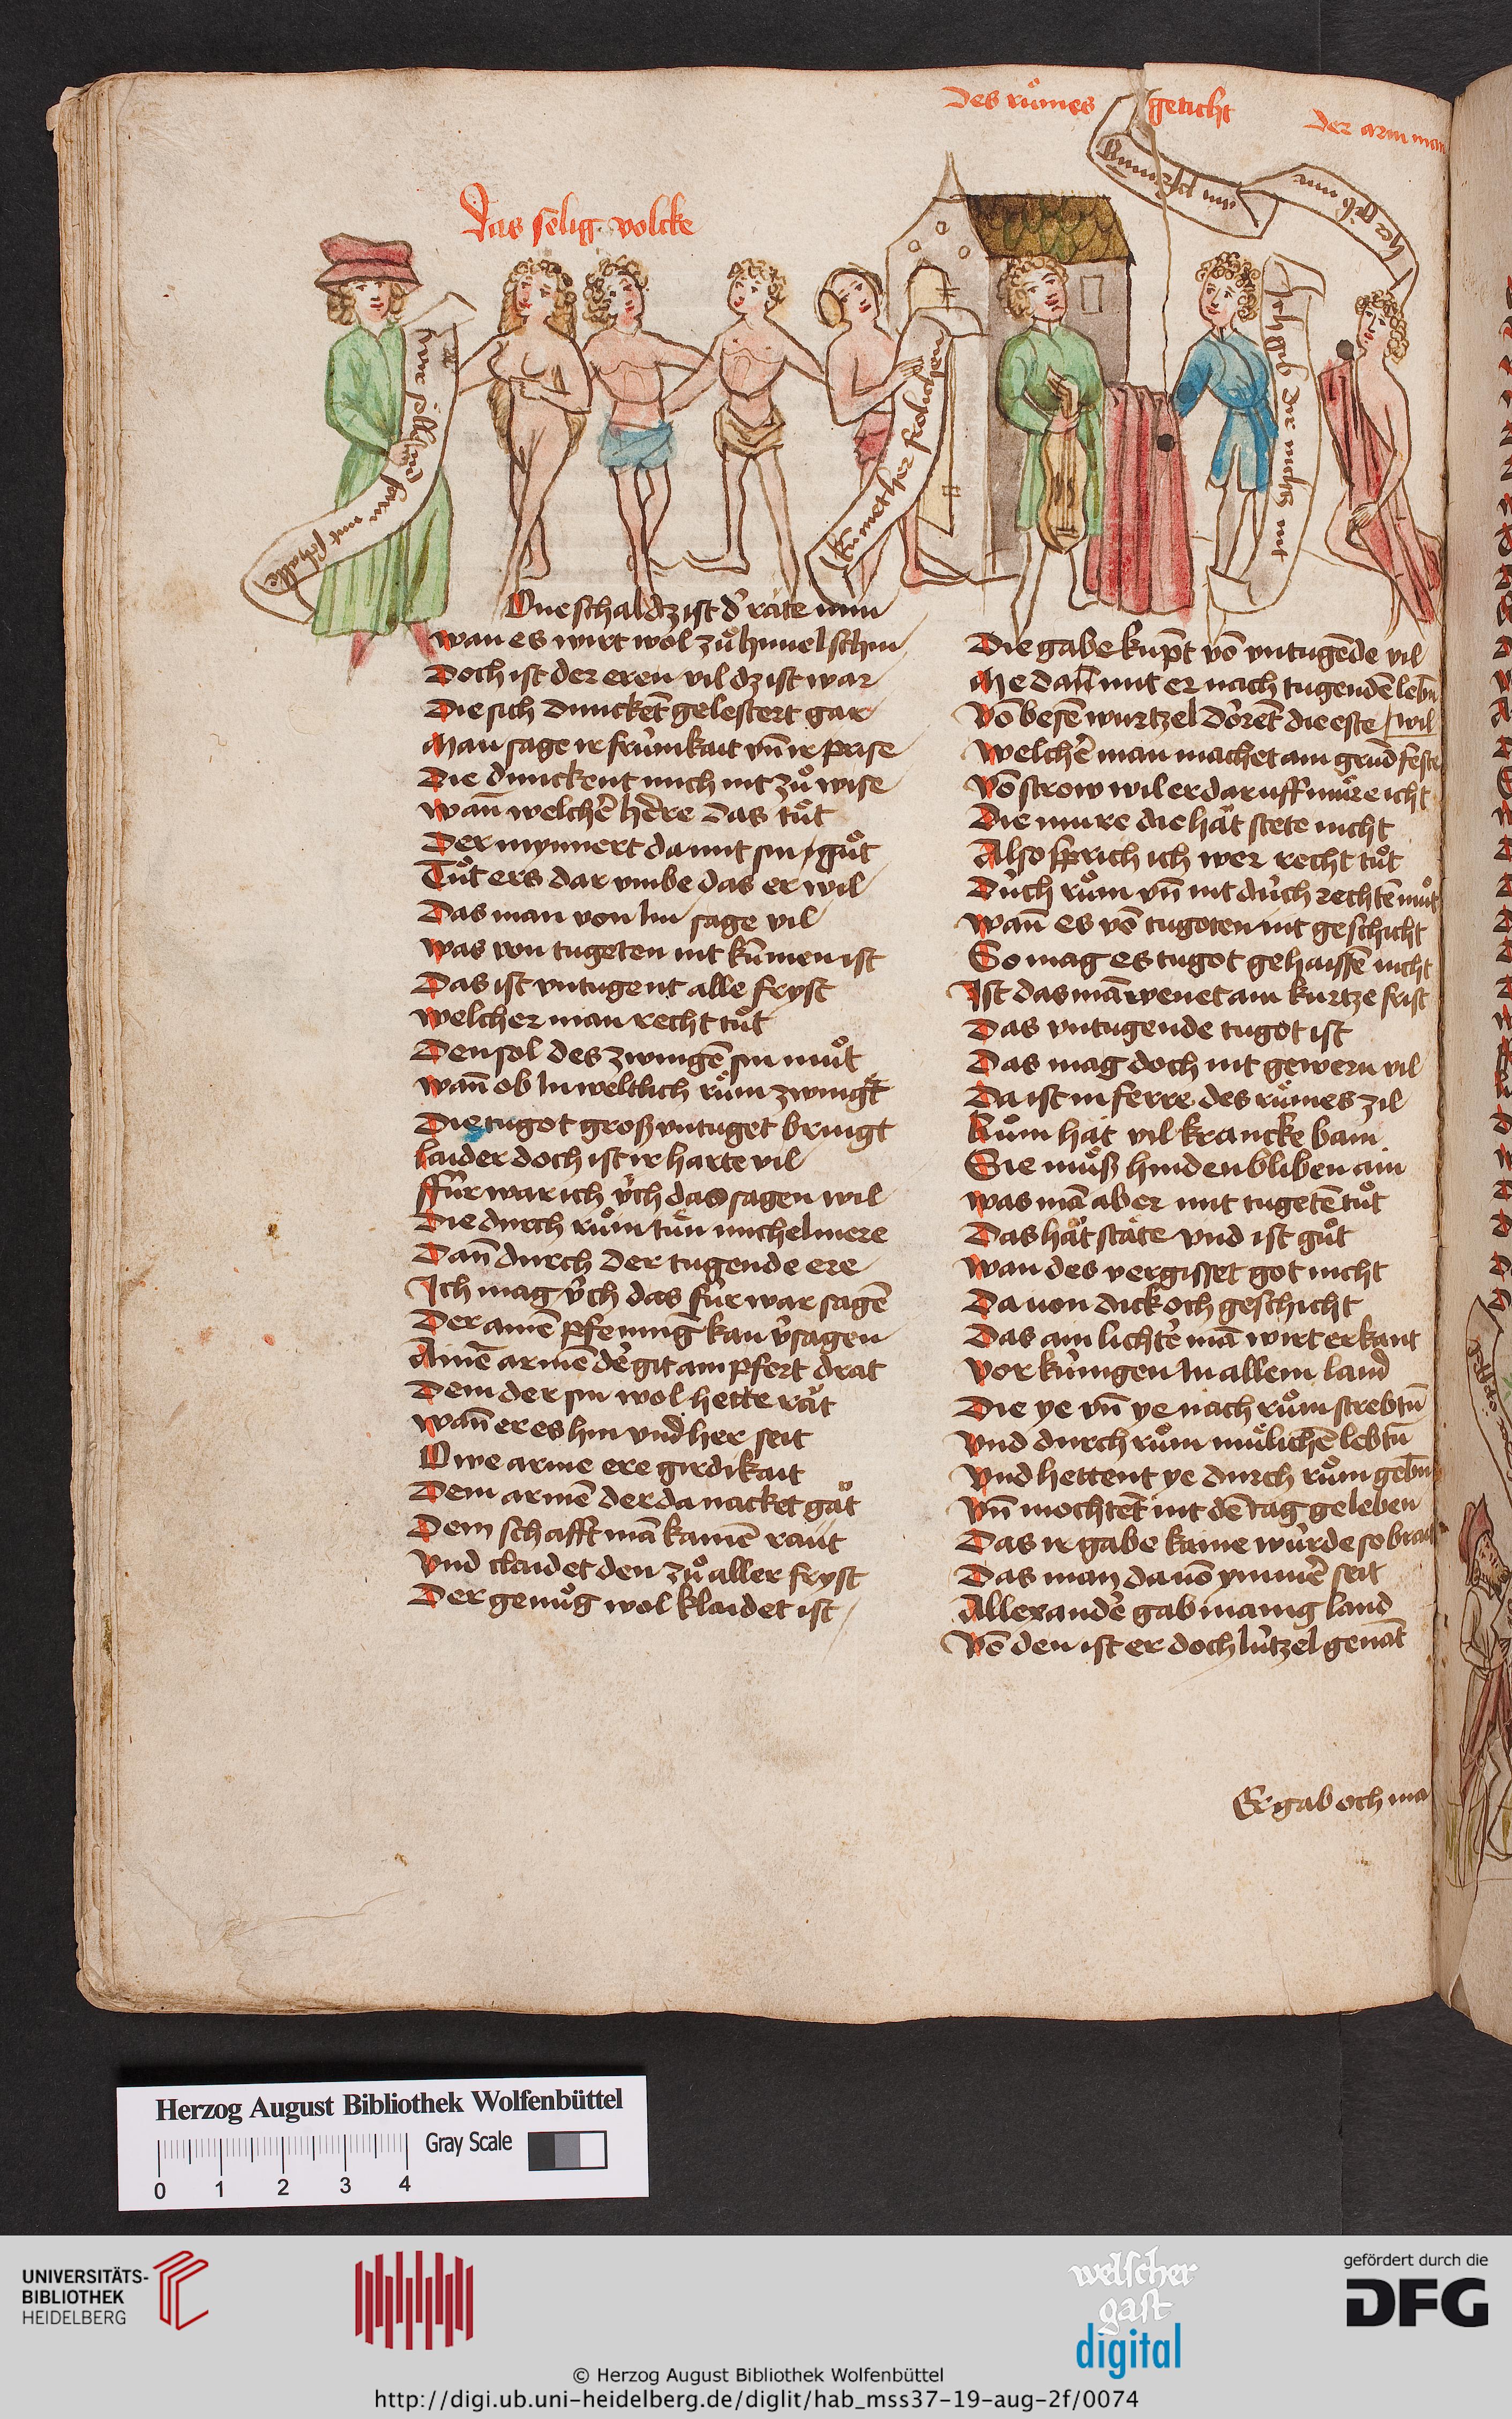 Des růmes geticht
Der arm man
Das sêlig volcke
kumet her frolichen
Ich gib dir nicht nit
Oneschal dz ist d' râte min
wan es wirt wol zů himel schin
Doch ist der eren vil dz ist war
Die sich dunckēt gelestert gar
Man sage ir frúmkait vn̄ ir prise
Die dunckent mich nit zů wise
wan̄ welchē herre das tůt
Der mynnert da mit sin gůt
Tůt ers dar vmbe das er wil
Das man von Im sage vil
was von tugeten nit kūmen ist
Das ist vntugent alle fryst
welcher man recht tůt
Den sol des zwingē sin můt
wan̄ ob In weltlich rům zwingt
Die tugot groß vntuget bringt
laider doch ist ir harte vil
ffúr war ich úch das sagen wil
Die durch rům tůn michel mere
Dan̄ durch der tugende ere
Ich mag úch das fúr war sagē
Der ainē pfening kan v'sagen
Ainē armē dē git ain pfert drat
Dem der sin wol hette rât
wan̄ er es hin vnd her seit
Owe arme ere girdikait
Dem armē der da nacket gât
Dem schafft mā kainē raut
Vnd claidet den zů aller fryst
Der genůg wol klaidet ist
Die gabe kūpt vō vntugēde vil
Me dan̄ mit er nach tugendē lebn
wil
Vō besē wurtzel dörēt die este
welchē man machet ain grūd feste
Vō strow wil er daruff mûre icht
Die mure die hât stete nicht
Also sprich ich wer recht tůt
Dúch rům vn̄ nit dúch rechtē můt
wan̄ es vō tugoten nit geschicht
So mag es tugot gehaissē nicht
Ist das mā wenet ain kurtze frist
Das vntugende tugot ist
Das mag doch nit gewern vil
Da ist in ferre des růmes zil
Rům hât vil krancke bain
Sie můß hinden bliben ain
was mā aber mit tugetē tůt
Das hât stâte vnd ist gůt
wan des vergisset got nicht
Da von dick och geschicht
Das ain lichtē mā wirt erkant
vor kúnigen In allem land
Die ye vn̄ ye nach rům strebtn̄
vnd durch rům mûlichē lebtn̄
Vnd hettent ye durch rům gebn̄
Vn̄ mochtēt nit dē tag geleben
Das ir gabe kaine wúrde so brait
Das man da vō ymmē seit
Allexandē gab manig land
Vō den ist er doch lútzel genāt
Er gab och ma
Herzog August Bibliothek Wolfenbüttel
Gray Scale
0 1 2 3 4
UNIVERSITÄTS-
BIBLIOTHEK
HEIDELBERG
welscher
gast
digital
gefördert durch die
DFG
© Herzog August Bibliothek Wolfenbüttel
http://digi.ub.uni-heidelberg.de/diglit/hab_mss37-19-aug-2f/0074